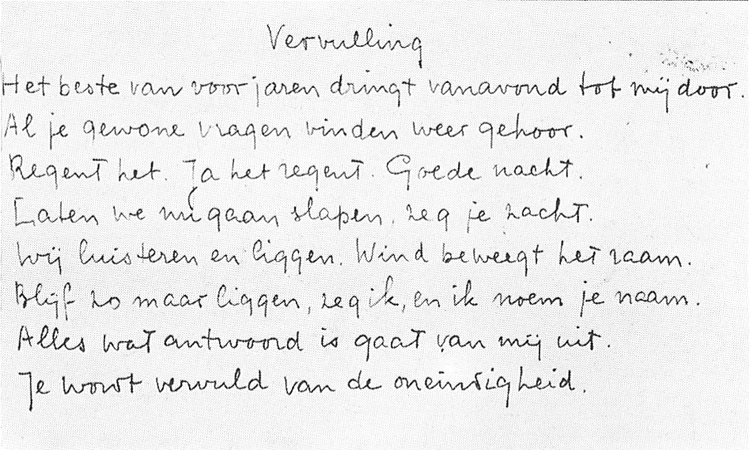 Vervulling
Het beste van voor jaren dringt vanavond tot mij door.
Al je gewone vragen vinden weer gehoor.
Regent het. Ja het regent. Goede nacht.
Laten we nu gaan slapen, zeg je zacht.
Wij luisteren en liggen. Wind beweegt het raam.
Blijf zo maar liggen, zeg ik, en ik noem je naam.
Alles wat antwoord is gaat van mij uit.
Je wordt vervuld van de oneindigheid.